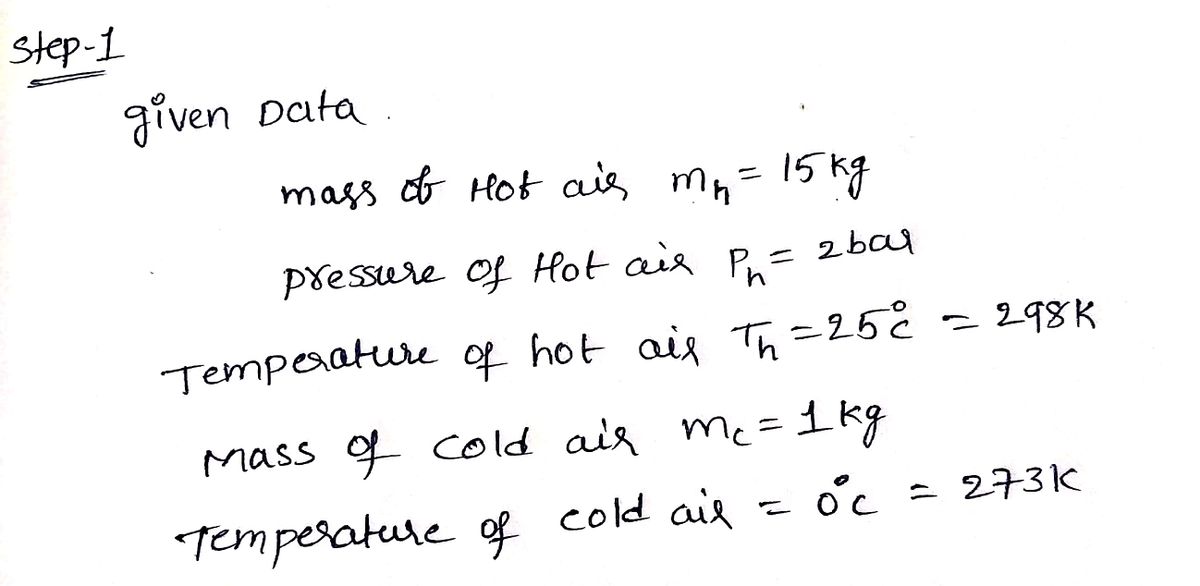 Step-1
given Data
mass of Hot air m_h = 15 kg
pressure of Hot air P_h = 2 bar
Temperature of hot air T_h = 25°c = 298K
Mass of cold air m_c = 1 kg
Temperature of cold air = 0°c = 273K